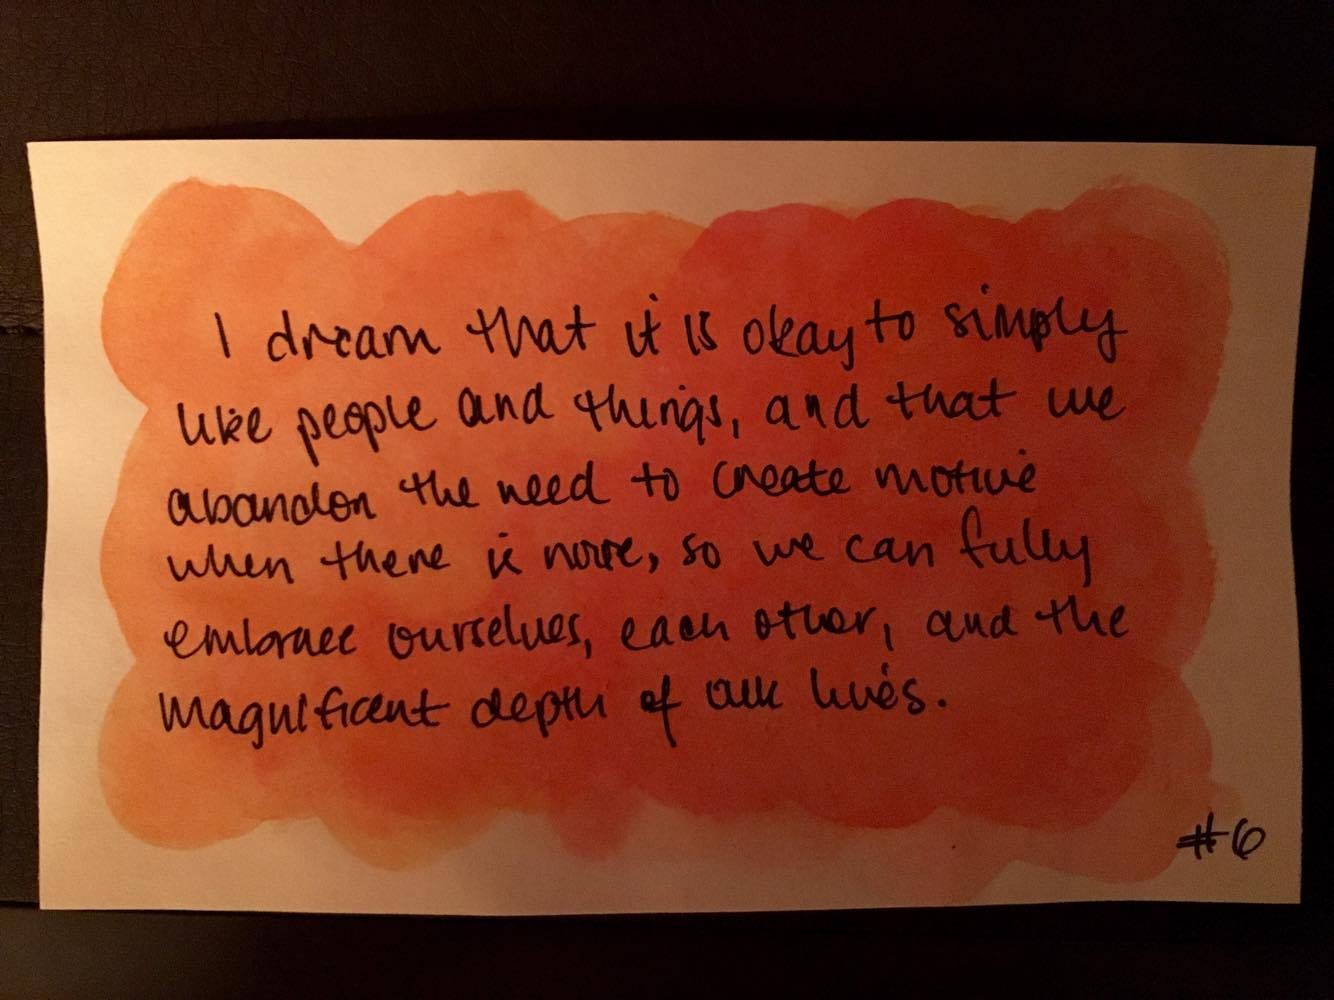 I dream that it is okay to simply
like people and things, and that we
abandon the need to create motive
when there is none, so we can fully
embrace ourselves, each other, and the
magnificent depth of our lives.
#6